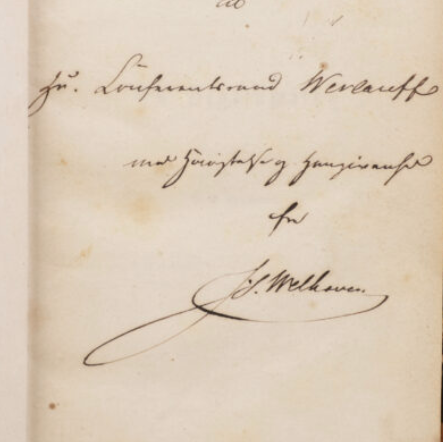 Hr. Conferentsraad Werlauff
med Høiagtelse og Hengivenhed
fra
J. S. Welhaven